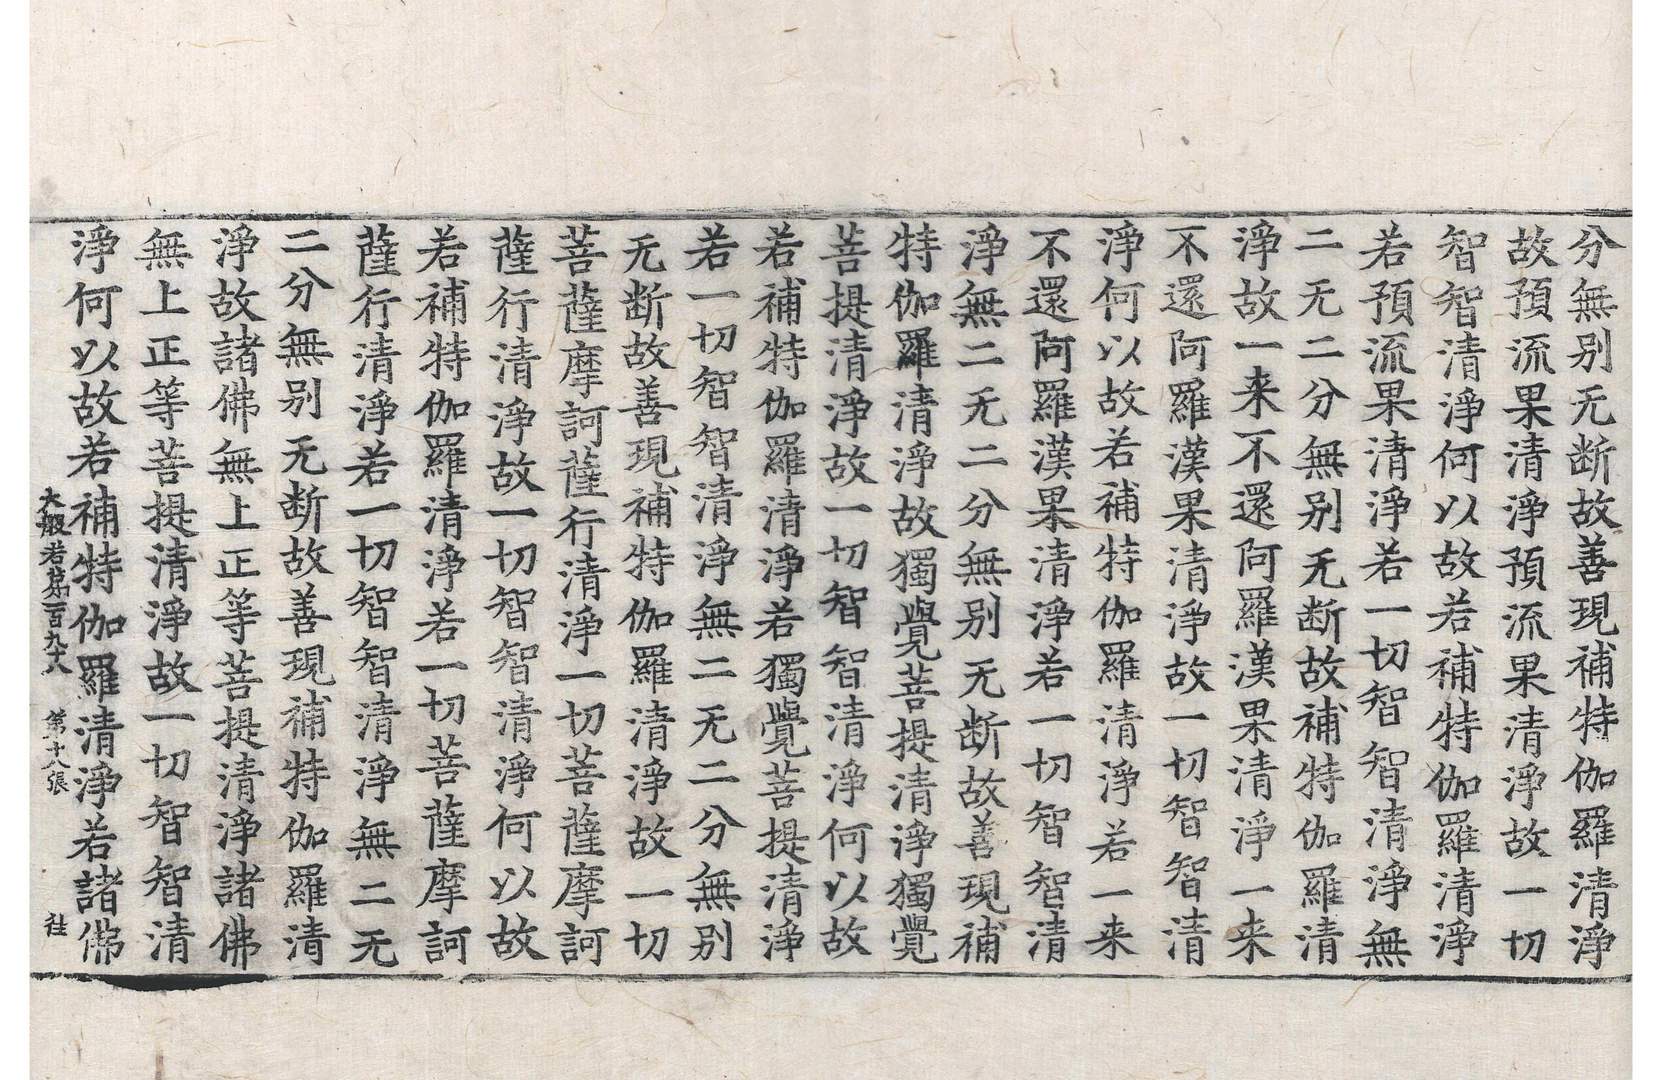 分無別无断故善現補特伽羅清淨
故預流果清淨預流果清淨故一切
智智清淨何以故若補特伽羅清淨
若預流果清淨若一切智智清淨無
二无二分無別无断故補特伽羅清
淨故一来不還阿羅漢果清淨一来
不還阿羅漢果清淨故一切智智清
淨何以故若補特伽羅清淨若一来
不還阿羅漢果清淨若一切智智清
淨無二无二分無別无断故善現補
特伽羅清淨故獨覺菩提清淨獨覺
菩提清淨故一切智智清淨何以故
若補特伽羅清淨若獨覺菩提清淨
若一切智智清淨無二无二分無別
无断故善現補特伽羅清淨故一切
菩薩摩訶薩行清淨一切菩薩摩訶
薩行清淨故一切智智清淨何以故
若補特伽羅清淨若一切菩薩摩訶
薩行清淨若一切智智清淨無二无
二分無別无断故善現補特伽羅清
淨故諸佛無上正等菩提清淨諸佛
無上正等菩提清淨故一切智智清
淨何以故若補特伽羅清淨若諸佛
大般若第一百九十八 第十八張